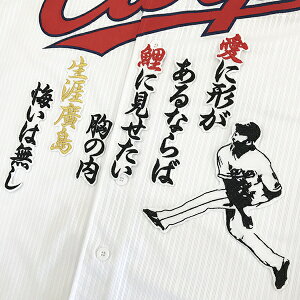 愛に形が
あるならば
鯉に見せたい
胸の内
生涯廣島
悔いは無し